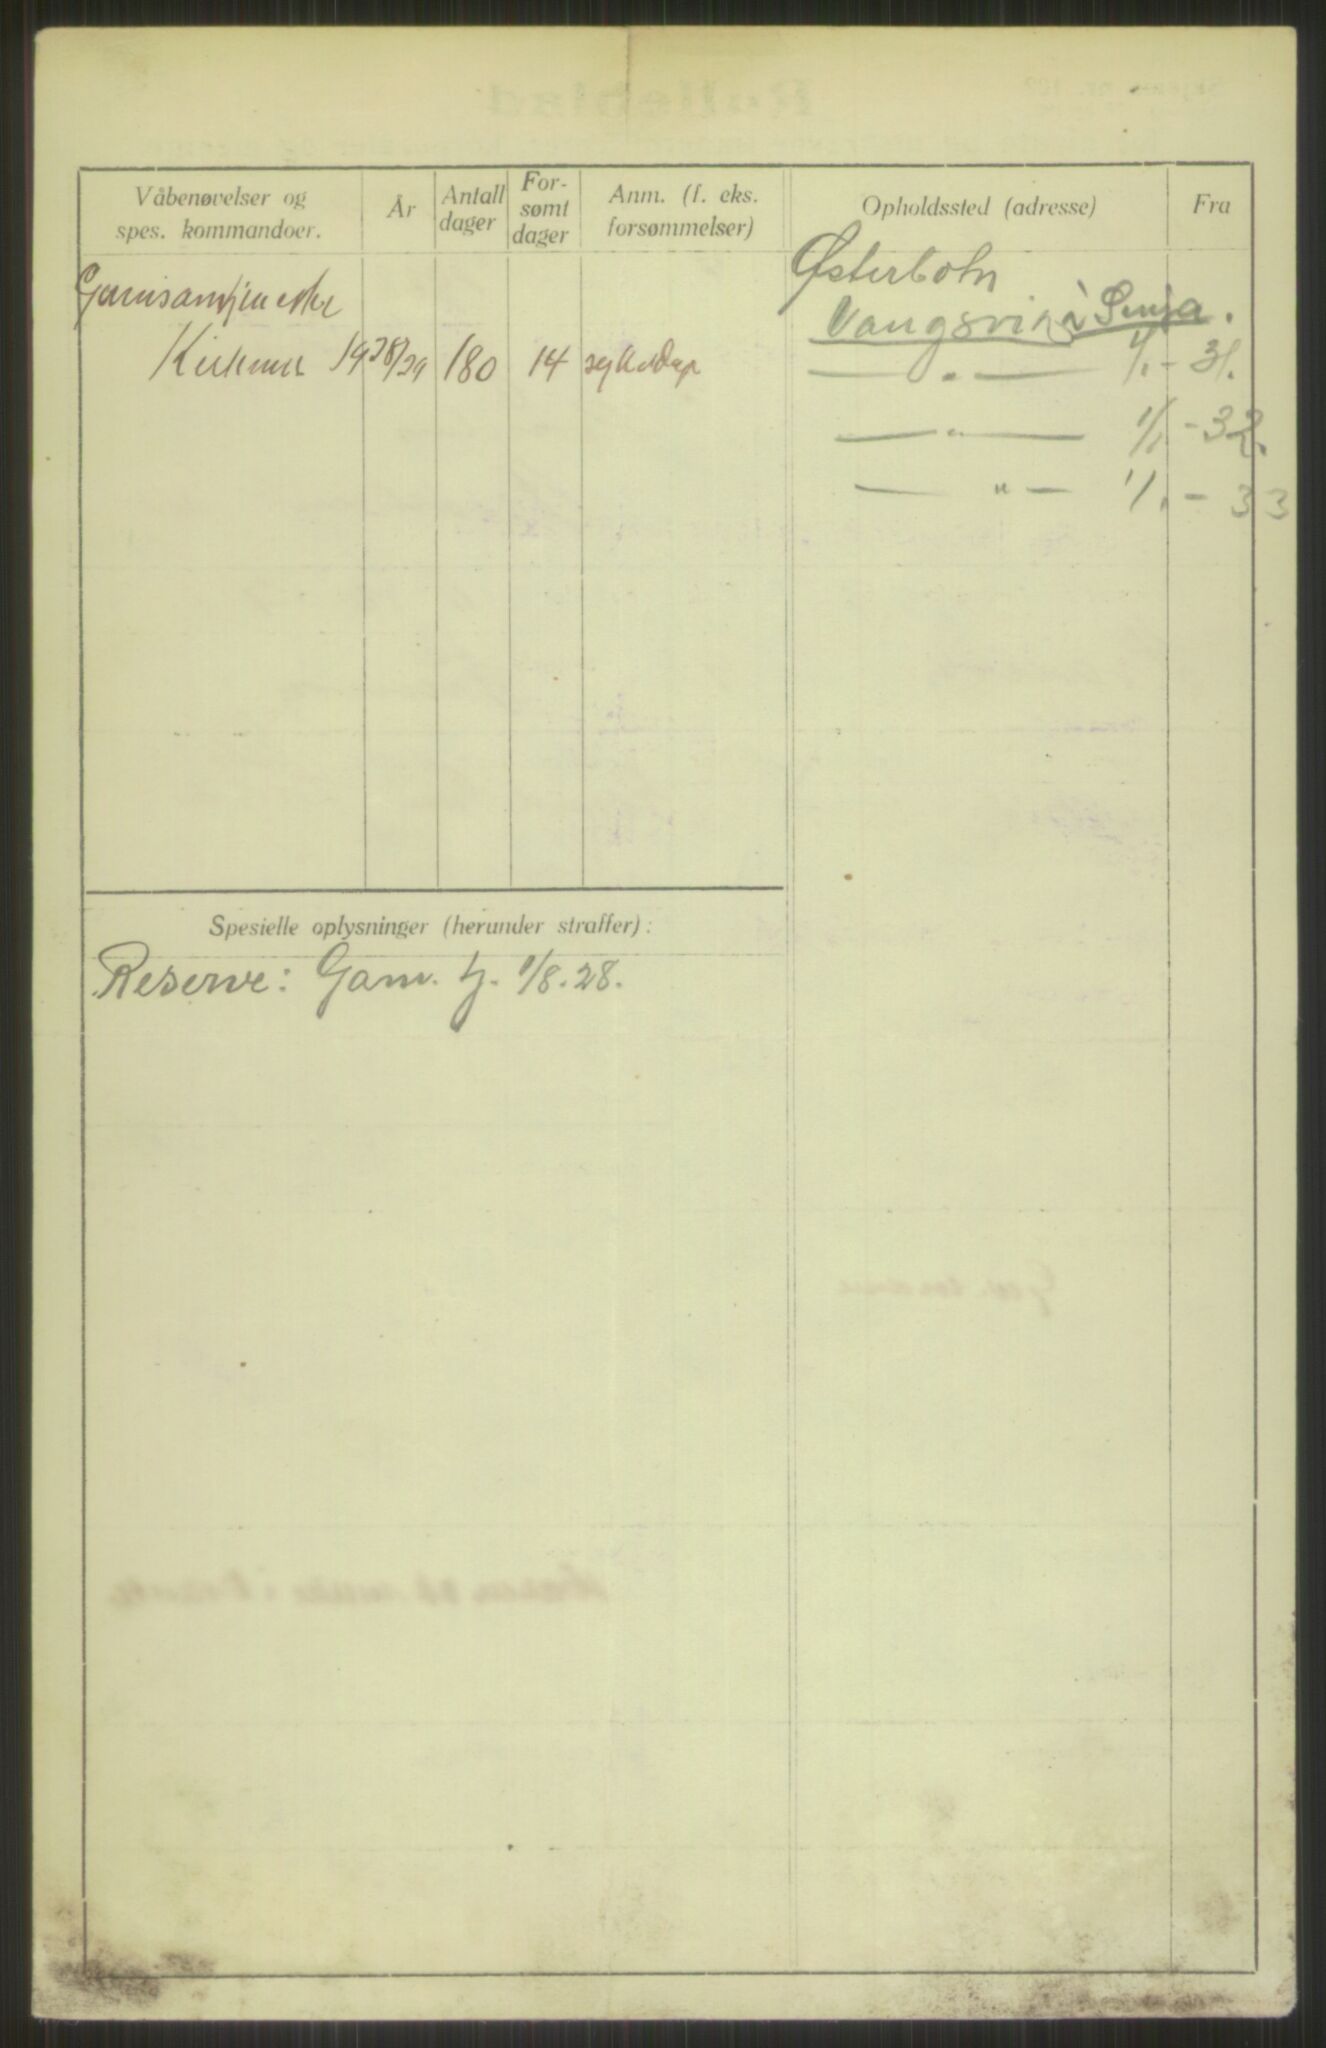 Våbenøvelser og
spes. kommandoer.
År
Antall
dager
For-
sømt
dager
Anm. (f. eks.
forsømmelser)
Opholdssted (adresse)
Fra
Garnisontjeneste
Kirkenes 1928/29 180 14 sykedage
Østerbotn
Vangsvik i Senja.
— " — 1/1 - 31.
— " — 1/1 - 32.
— " — 1/1 - 33
Spesielle oplysninger (herunder straffer):
Reserve: Garn. tj. 1/8.28.